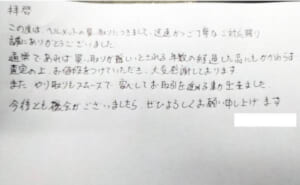 拝啓
この度は、ヘルメットの買い取りにつきまして、迅速かつご丁寧なご対応賜り
誠にありがとうございました。
通常であれば買い取りが難しいとされる年数の経過した品にもかかわらず
査定の上、お値段をつけていただき、大変感謝しております
また やり取りもスムーズで 安心してお取引を進める事が出来ました。
今後とも機会がございましたら、ぜひよろしくお願い申し上げます